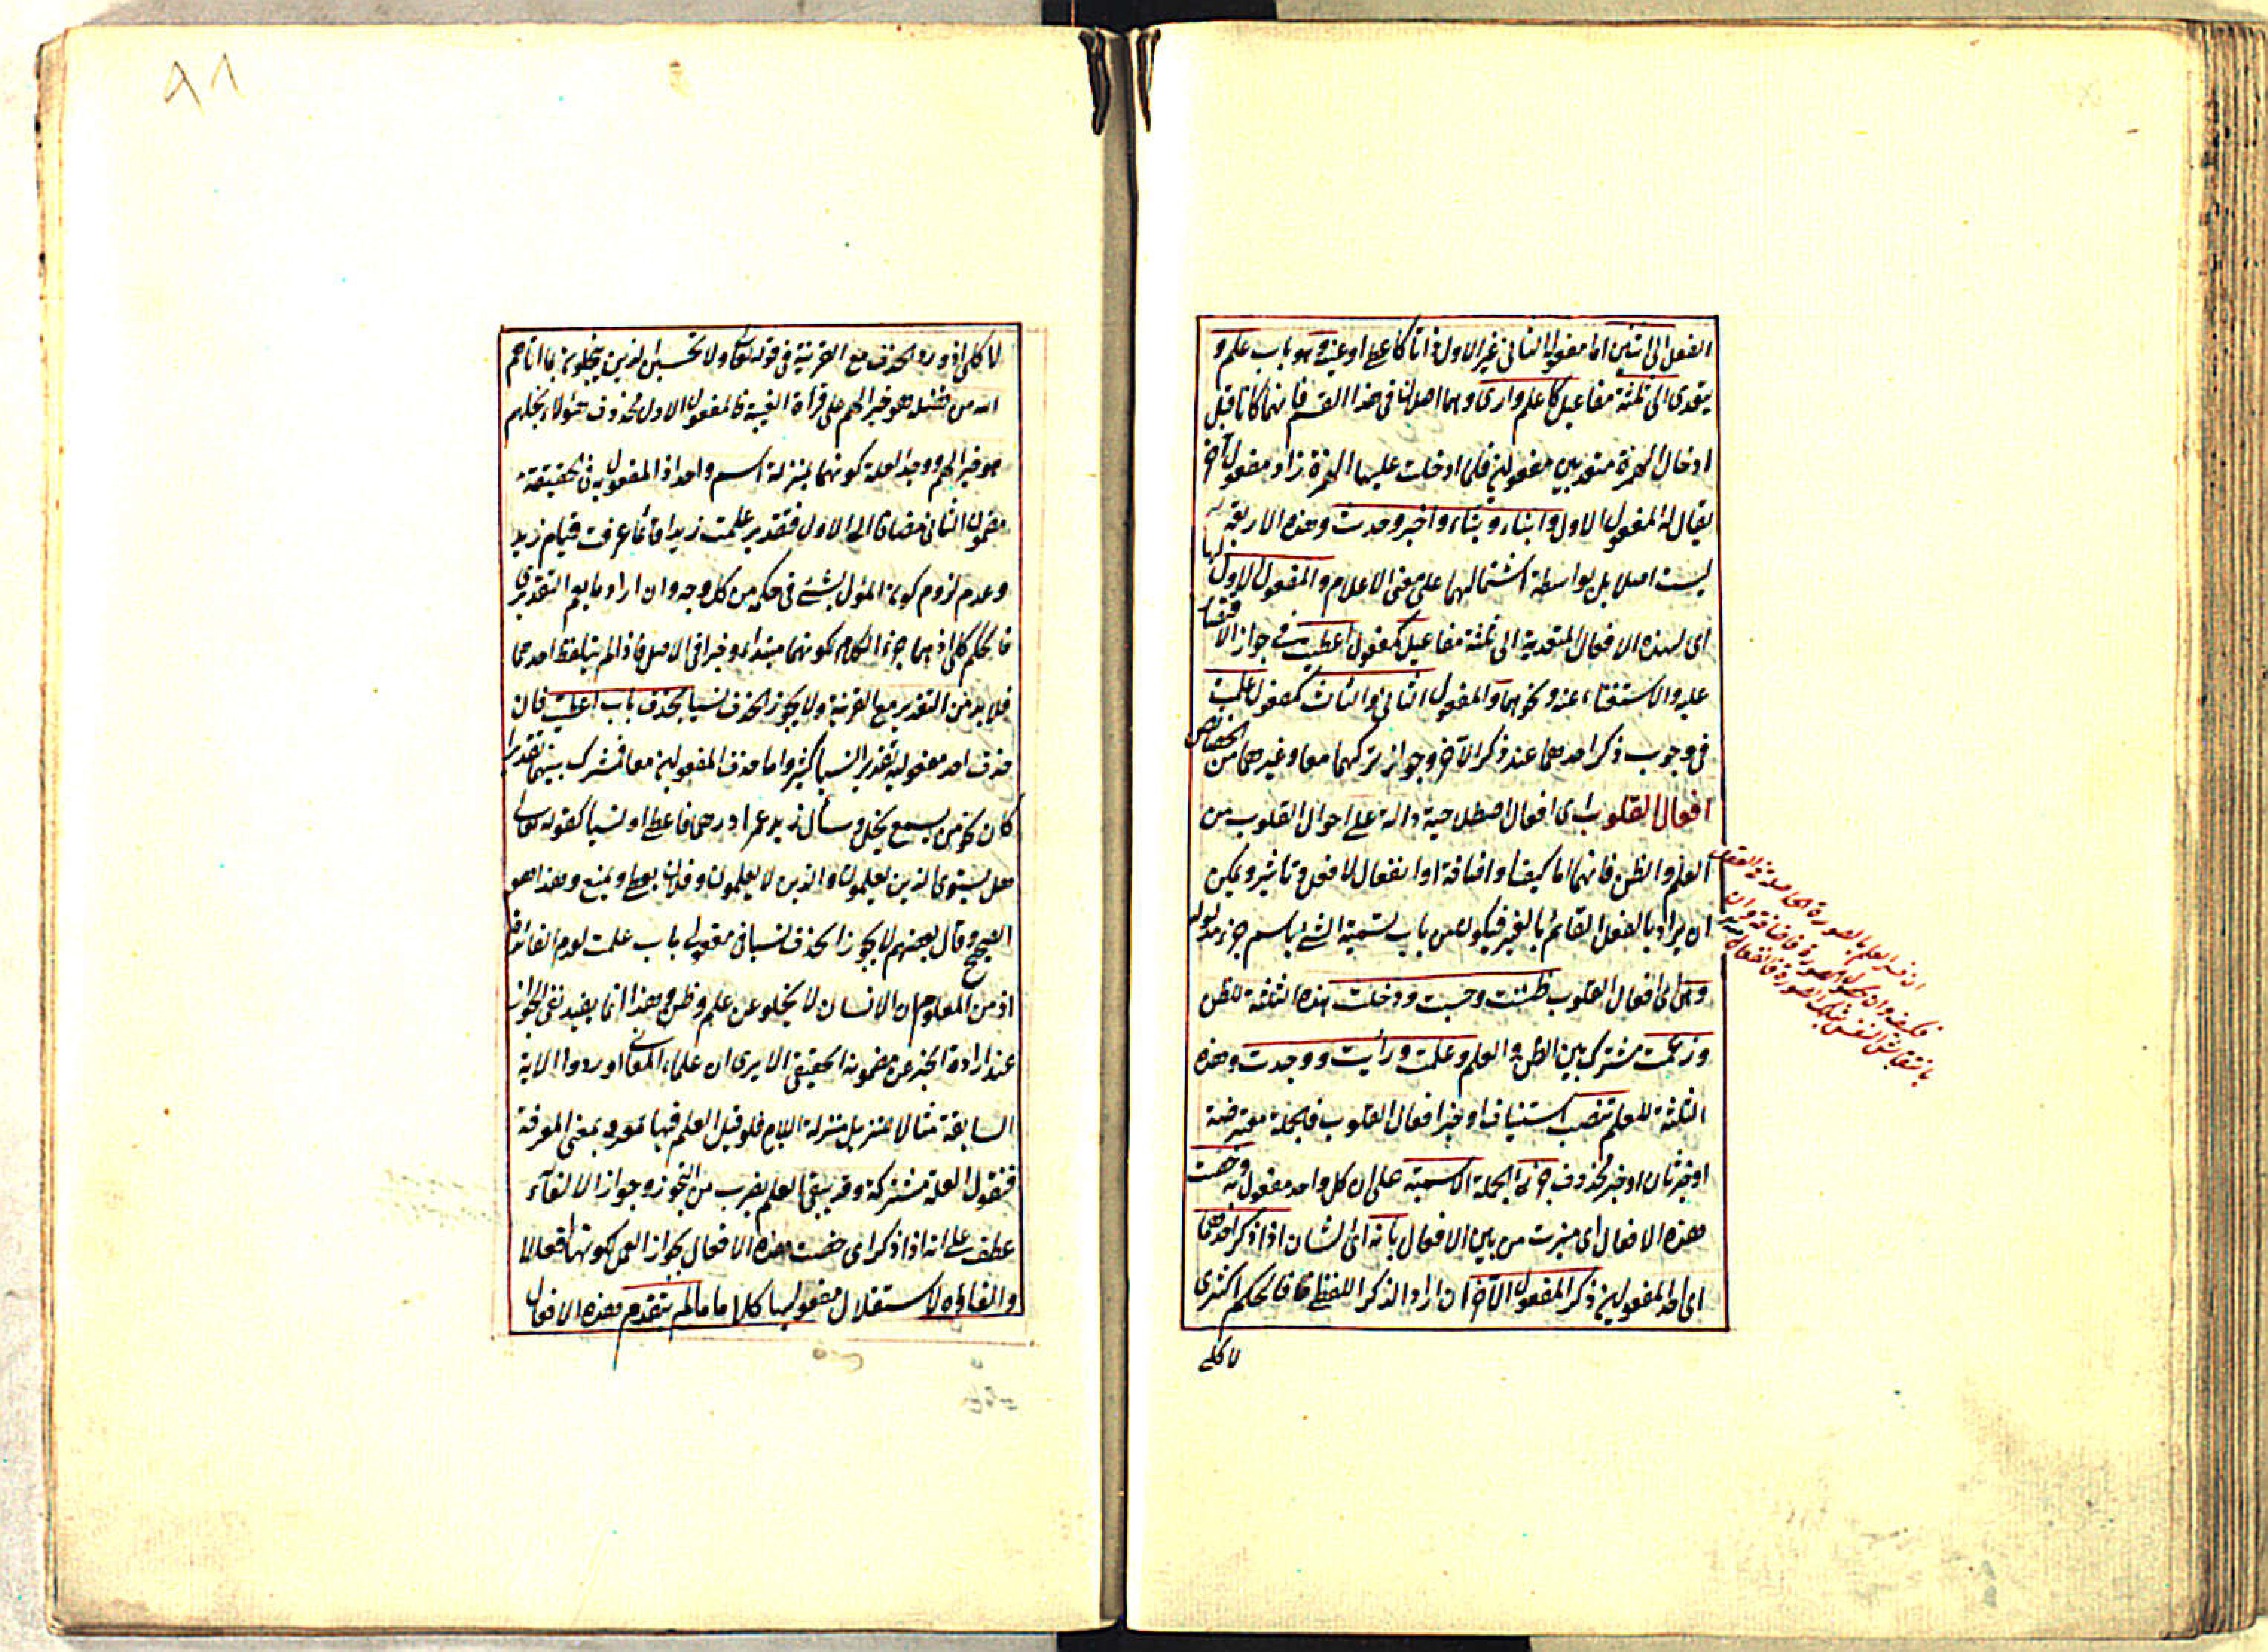 الفعل الى اثنين اما مفعوله الثانى غير الاول ذاتا كاعطى او عينه وهو باب علم و
يتعدى الى ثلثة مفاعيل كاعلم وارى وهما اصلان فى هذا القسم فانهما كانا قبل
ادخال الهمزة متعديين مفعولين فلما ادخلت عليهما الهمزة زاد مفعول آخر
يقال له المفعول الاول وانباء ونباء واخبر وحدث وهذه الاربعة
ليست اصلا بل بواسطة اشتمالها على معنى الاعلام والمفعول الاول لها
اى لهذه الافعال المتعدية الى ثلثة مفاعيل كمفعول اعطيت فى جواز الاقتصار
عليه والاستغناء عنه ونحوهما والمفعول الثانى والثالث كمفعول علمت
فى وجوب ذكر احدهما عند ذكر الآخر وجواز تركهما معا وغيرهما من الخصائص
افعال القلوب اى افعال اصطلاحية دالة على احوال القلوب من
العلم والظن فانهما اما كيف او اضافة او انفعال لا فعل وتاثير ويمكن
ان يراد بالفعل القائم بالغير فيكون من باب تسمية الشئ باسم جزء مدلوله
وهى اى افعال القلوب ظننت وحسبت وخلت هذه الثلثة للظن
وزعمت مشترك بين الظن والعلم وعلمت ورأيت ووجدت وهذه
الثلثة للعلم تنصب استيناف او خبر افعال القلوب فالجملة معترضة
او خبر ثان او خبر محذوف جزئى الجملة الاسمية على ان كل واحد مفعول به وخصت
هذه الافعال اى ميزت من بين الافعال بانه اى الشان اذا ذكر احدهما
اى احد المفعولين ذكر المفعول الآخر ان اراد الذكر اللفظى فالحكم اكثرى
لا كلى
ان فسر العلم بالصورة الحاصلة فى العقل
فكيف وان بحصول الصورة فاضافة وان
بانتقاش النفس بتلك الصورة فانفعال منه
٨١
لا كلى اذ ورد الحذف مع القرينة فى قوله تعالى ولا تحسبن الذين يبخلون بما اتاهم
الله من فضله هو خيرا لهم على قرأة الغيبة فالمفعول الاول محذوف هؤلاء بخلهم
هو خيرا لهم ووجه العلة كونهما بمنزلة اسم واحد اذ المفعول به فى الحقيقة
مضمون الثانى مضافا الى الاول فتقدير علمت زيدا قائما عرفت قيام زيد
وعدم لزوم كون المؤل بشئ فى حكمه من كل وجه وان اراد ما يعم التقديرى
فالحكم كلى اذ هما جزءا الكلام لكونهما مبتداء وخبرا فى الاصل فاذا لم يتلفظ احدهما
فلا بد من التقدير مع القرينة ولا يجوز الحذف نسيا بخلاف باب اعطيت فان
حذف احد مفعوليه تقديرا نسيا كثير واما حذف المفعولين معا فمشترك بينهما تقديرا
كان نحو من يسمع يخل وسأل زيد عمرا درهما فاعطى او نسيا كقوله تعالى
هل يستوى الذين يعلمون والذين لا يعلمون وفلان يعطى ويمنع وهذا هو
الصحيح وقال بعضهم لا يجوز الحذف نسيا فى مفعولى باب علمت لعدم الفائدة
اذ من المعلوم ان الانسان لا يخلو عن علم وظن وهذا انما يفيد نفى الجواز
عند ارادة الخبر عن مضمونه الحقيقى الا يرى ان علماء المعانى اوردوا الاية
السابقة مثالا لتنزيل منزلة اللازم فلو قيل العلم فيها بمعنى المعرفة
فنقول العلة مشتركة وقد يبقى العلم بضرب من التجوز وجواز الالغاء
عطف على انه اذا ذكر اى خصت هذه الافعال بجواز العمل لكونها افعالا
والغاؤه لاستقلال مفعوليها كلاما ما لم يتقدم هذه الافعال